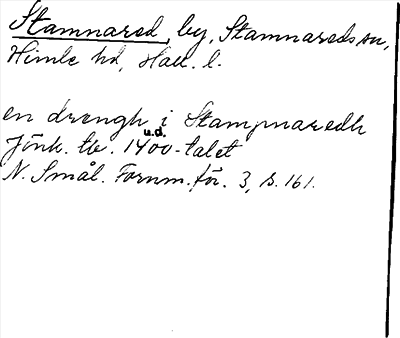 Stamnared, by, Stamnareds sn,
Himle hd, Hall. l.
en drængh i Stampnaredh
u.d.
Jönk. tb. 1400-talet
N. Smål. Fornm.för. 3, s. 161.